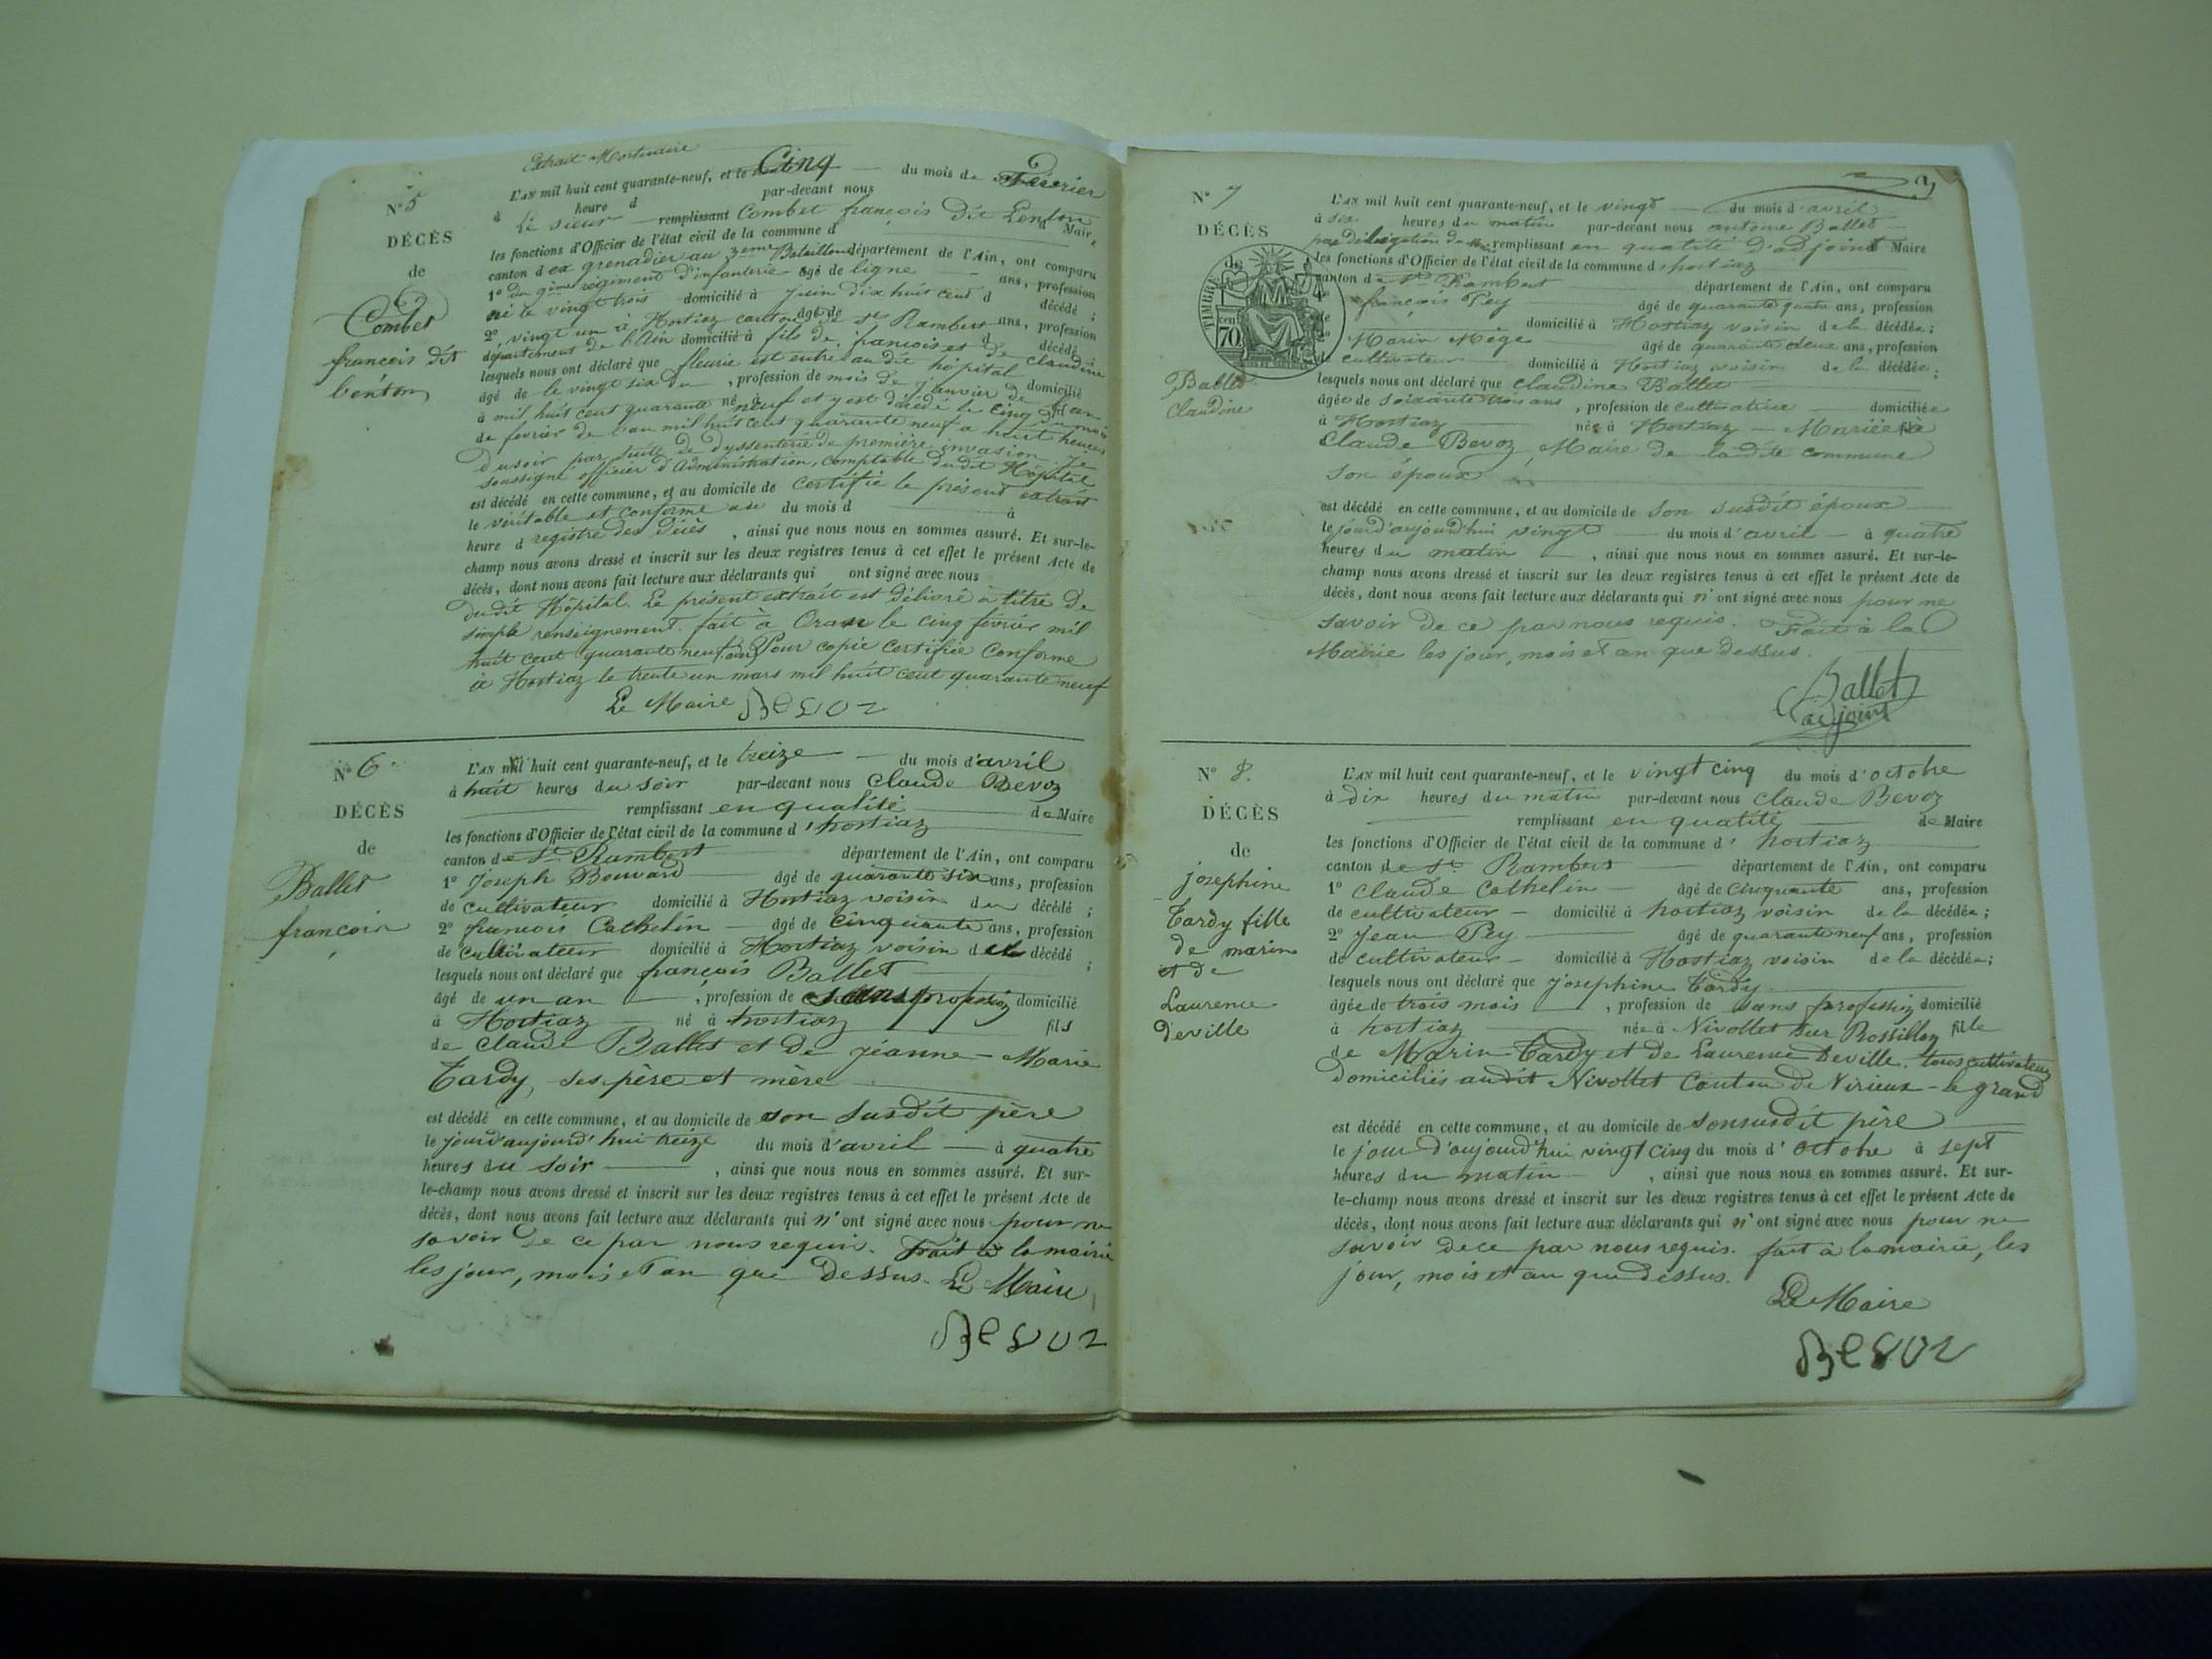 Extrait Mortuaire
N° 5
DÉCÈS
de
Combet
françois dit
L'AN mil huit cent quarante-neuf, et le Cinq du mois de Février
à heure d par-devant nous
Le sieur remplissant Combet françois dit Maire
les fonctions d'Officier de l'état civil de la commune d
canton d ex grenadier au 3eme Bataillon département de l'Ain, ont comparu
1° du 9ème régiment d'infanterie âgé de ligne ans, profession
né le vingt trois domicilié à juin dix huit cent d décédé ;
2° vingt un à Hostiaz canton âgé de de St Rambert ans, profession
département de l'Ain domicilié à fils de françois et d de claudine décédé ;
lesquels nous ont déclaré que fleurie est entré au dit hôpital
âgé de le vingt six du , profession de mois de janvier de l'an domicilié
à mil huit cent quarante né à neuf et y est décédé le cinq du mois
de fevrier de l'an mil huit cent quarante neuf a huit heures
du soir par suite de dyssenterie de première invasion. Je
soussigné officier d'Administration, comptable dudit Hôpital
est décédé en cette commune, et au domicile de certifie le présent extrait
le véritable et conforme au du mois d à
heure d registre des Décès , ainsi que nous nous en sommes assuré. Et sur-le-
champ nous avons dressé et inscrit sur les deux registres tenus à cet effet le présent Acte de
décès, dont nous avons fait lecture aux déclarants qui ont signé avec nous
dudit Hôpital. Le présent extrait est délivré a titre de
simple renseignement. fait à Oran le cinq février mil
huit cent quarante neuf Pour copie certifiée Conforme
à Hostiaz le trente un mars mil huit cent quarante neuf
Le Maire Bevoz
N° 6
DÉCÈS
de
Ballet
françois
L'AN mil huit cent quarante-neuf, et le treize du mois d'avril
à huit heures du soir par-devant nous Claude Bevoz
remplissant en qualité de Maire
les fonctions d'Officier de l'état civil de la commune d'hostiaz
canton de St Rambert département de l'Ain, ont comparu
1° Joseph Bouvard âgé de quarante six ans, profession
de cultivateur domicilié à Hostiaz voisin du décédé ;
2° francois Cathelin âgé de cinquante ans, profession
de cultivateur domicilié à Hostiaz voisin du décédé ;
lesquels nous ont déclaré que françois Ballet
âgé de un an , profession de sans profession domicilié
à Hostiaz né à hostiaz fils
de claude Ballet et de jeanne-Marie
Tardy, ses père et mère
est décédé en cette commune, et au domicile de son susdit père
le jourd'aujourd'hui treize du mois d'avril à quatre
heures du soir , ainsi que nous nous en sommes assuré. Et sur-
le-champ nous avons dressé et inscrit sur les deux registres tenus à cet effet le présent Acte de
décès, dont nous avons fait lecture aux déclarants qui n'ont signé avec nous pour ne
savoir de ce par nous requis. Fait à la mairie
les jour, mois et an que dessus. Le Maire
Bevoz
3
N° 7
DÉCÈS
de
TIMBRE
70
Ballet
Claudine
L'AN mil huit cent quarante-neuf, et le vingt du mois d'avril
à six heures du matin par-devant nous antoine Ballet
par délégation du remplissant en qualité d'adjoint Maire
les fonctions d'Officier de l'état civil de la commune d'hostiaz
canton de St Rambert département de l'Ain, ont comparu
françois Pey âgé de quarante quatre ans, profession
domicilié à Hostiaz voisin de la décédée ;
Marin Mège âgé de quarante deux ans, profession
de cultivateur domicilié à Hostiaz voisin de la décédée ;
lesquels nous ont déclaré que Claudine Ballet
âgée de soixante trois ans , profession de cultivatrice domiciliée
à Hostiaz née à Hostiaz Mariée à
Claude Bevoz, Maire de la dite commune
son époux
est décédé en cette commune, et au domicile de son susdit époux
le jourd'aujourd'hui vingt du mois d'avril à quatre
heures du matin , ainsi que nous nous en sommes assuré. Et sur-le-
champ nous avons dressé et inscrit sur les deux registres tenus à cet effet le présent Acte de
décès, dont nous avons fait lecture aux déclarants qui n'ont signé avec nous pour ne
savoir de ce par nous requis. Fait à la
Mairie les jour, mois et an que dessus.
Ballet
adjoint
N° 8.
DÉCÈS
de
josephine
Tardy fille
de marin
et de
Laurence
Deville
L'AN mil huit cent quarante-neuf, et le vingt cinq du mois d'octobre
à dix heures du matin par-devant nous Claude Bevoz
remplissant en qualité de Maire
les fonctions d'Officier de l'état civil de la commune d'hostiaz
canton de St Rambert département de l'Ain, ont comparu
1° Claude Cathelin âgé de cinquante ans, profession
de cultivateur domicilié à hostiaz voisin de la décédée ;
2° Jean Pey âgé de quarante neuf ans, profession
de cultivateur domicilié à Hostiaz voisin de la décédée ;
lesquels nous ont déclaré que josephine Tardy
âgée de trois mois , profession de sans profession domicilié
à hostiaz née à Nivollet sur Rossillon fille
de Marin Tardy et de Laurence Deville, tous cultivateurs
domiciliés audit Nivollet Canton de Virieux-le grand
est décédé en cette commune, et au domicile de son susdit père
le jour d'aujourd'hui vingt cinq du mois d'octobre à sept
heures du matin , ainsi que nous nous en sommes assuré. Et sur-
le-champ nous avons dressé et inscrit sur les deux registres tenus à cet effet le présent Acte de
décès, dont nous avons fait lecture aux déclarants qui n'ont signé avec nous pour ne
savoir de ce par nous requis. fait à la mairie, les
jour, mois et an que dessus.
Le Maire
Bevoz